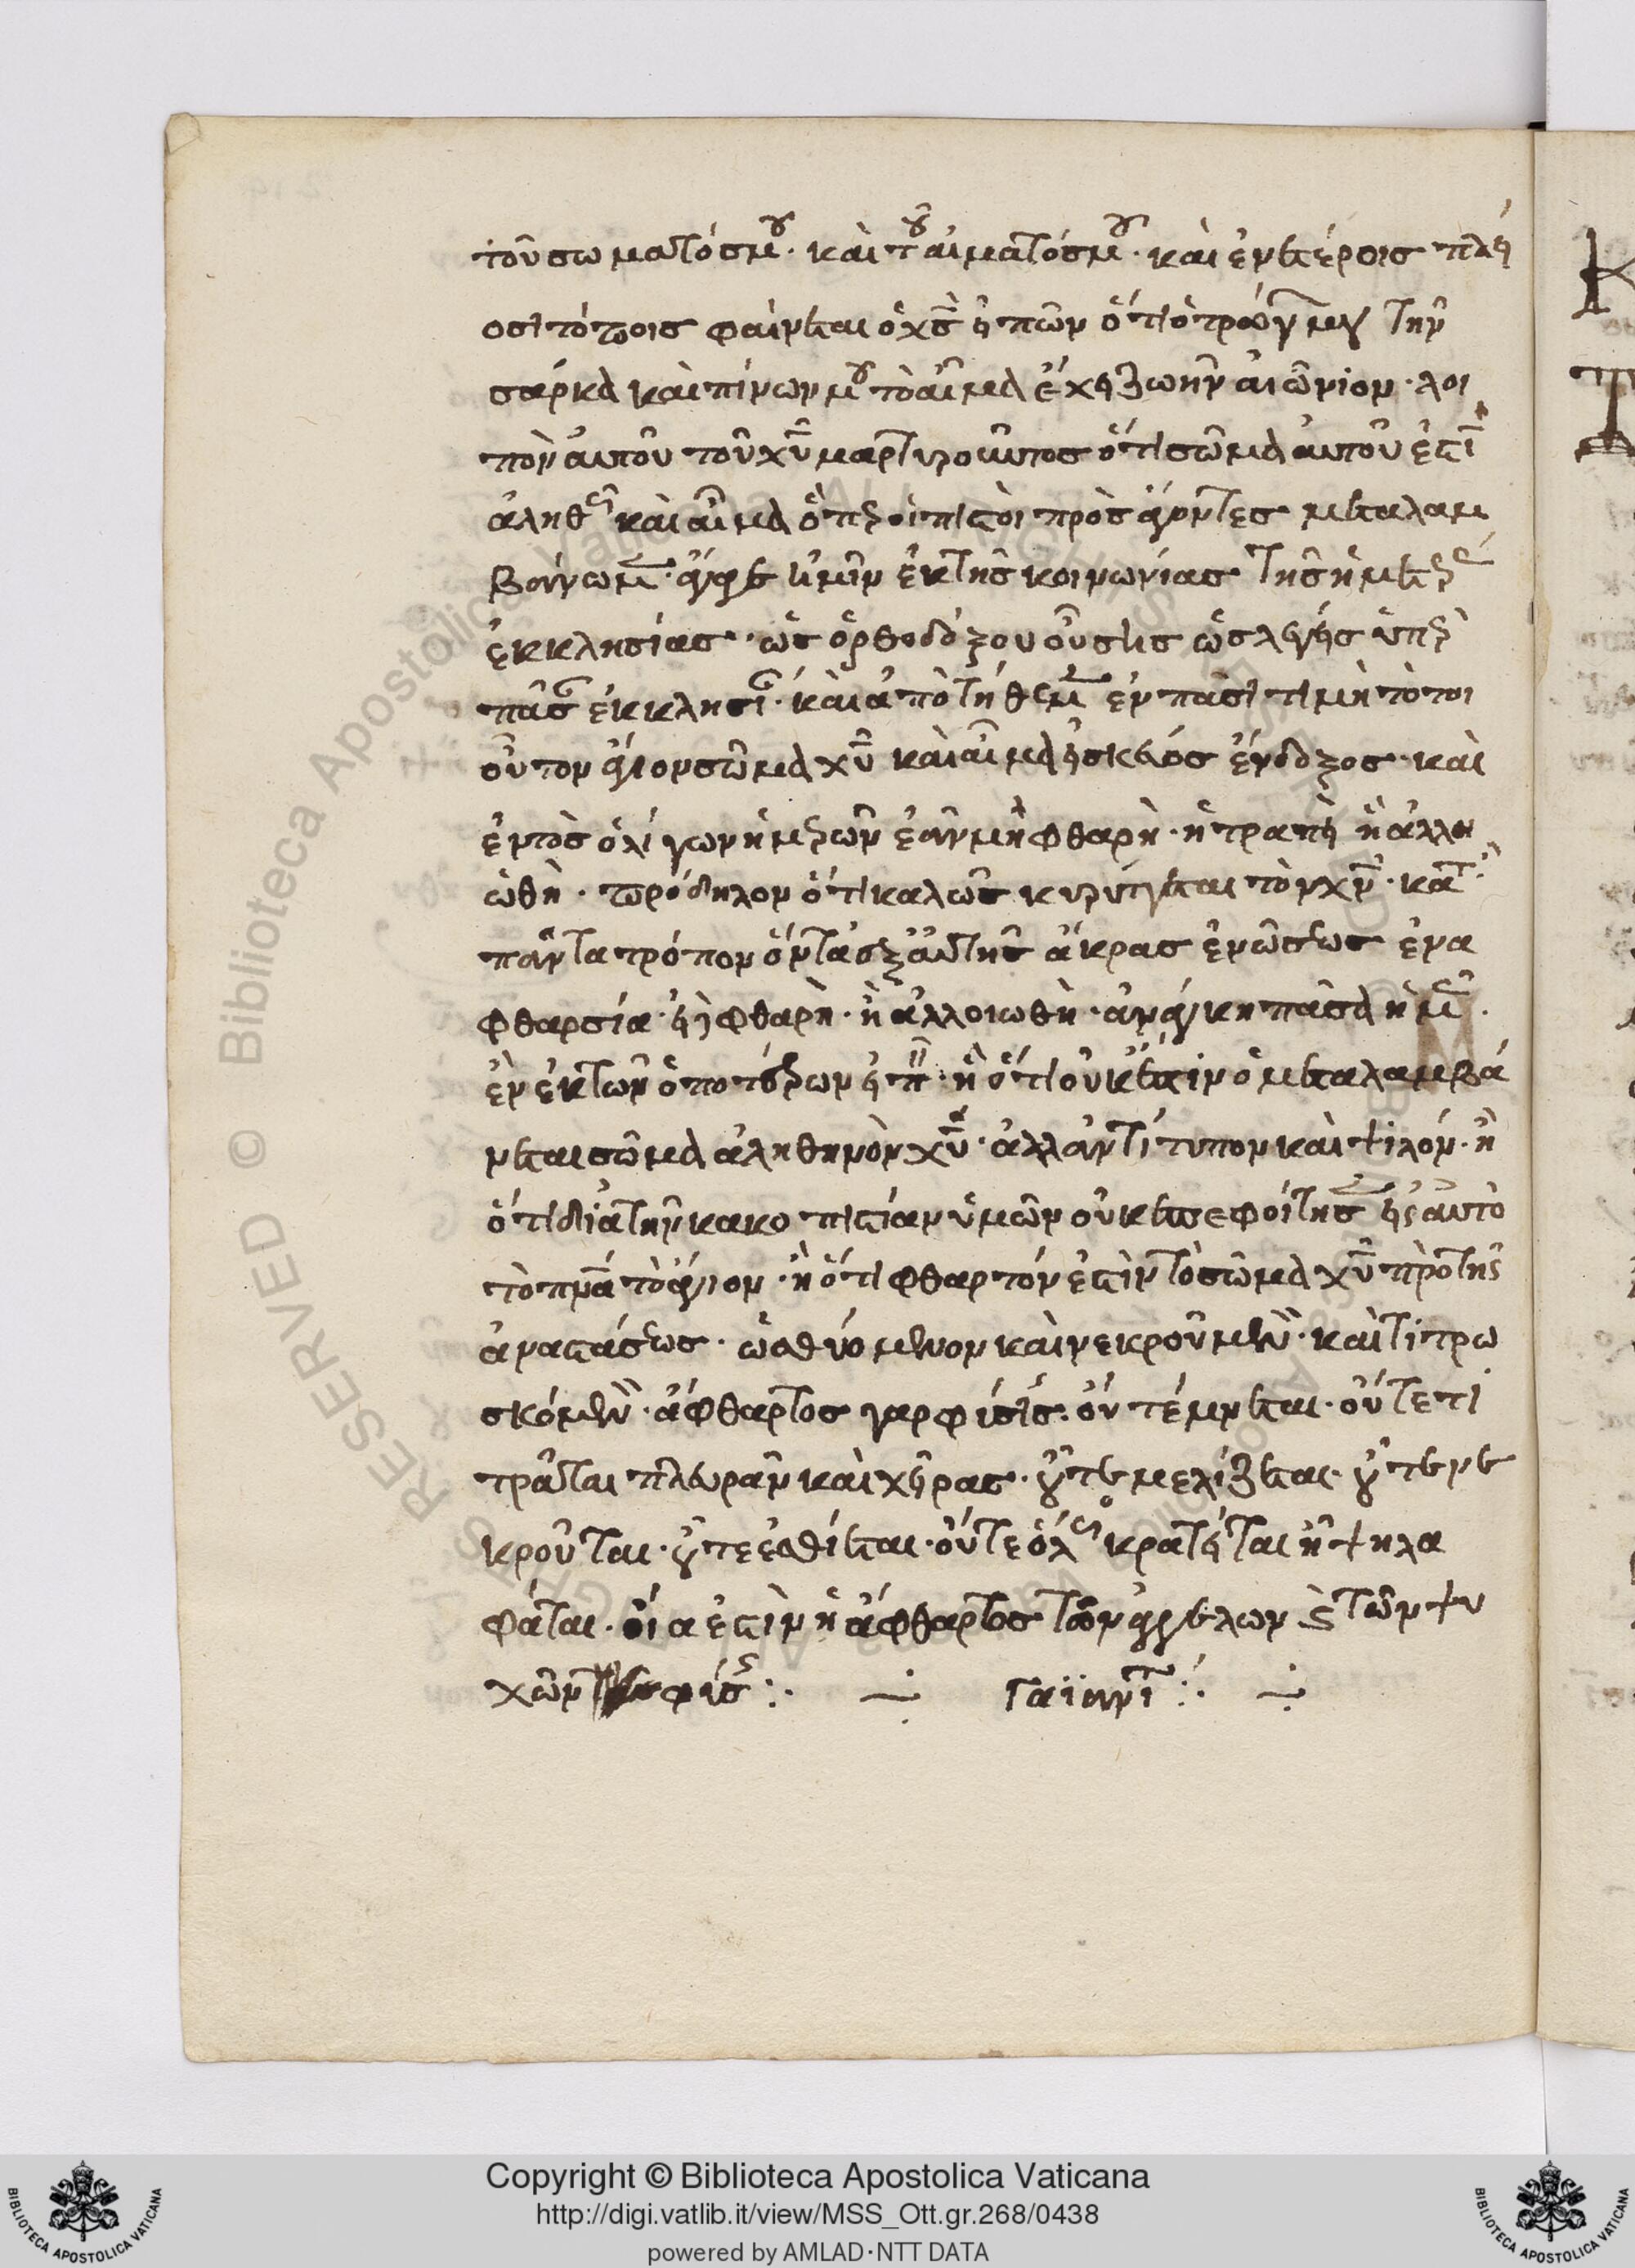 τοῦ σωματός μου. καὶ τοῦ αἵματός μου. καὶ ἐν ἑτέροις πλεί
οσι τόποις φαίνεται ὁ χς εἰπὼν ὅτι ὁ τρώγων μου τὴν
σάρκα καὶ πίνων μου τὸ αἷμα ἔχει ζωὴν αἰώνιον. λοι
πὸν αὐτοῦ τοῦ χυ μαρτυροῦντος ὅτι σῶμα αὐτοῦ ἐστὶ
ἀληθῶς καὶ αἷμα ὅπερ οἱ πιστοὶ προσάγοντες μεταλαμ
βάνωμεν. ἄγαγε ἡμῖν ἐκ τῆς κοινωνίας τῆς ἡμετέρας
ἐκκλησίας. ὡς ὀρθοδόξου οὔσης ὡς λέγεις ὑπὲρ
πάσας ἐκκλησίας. καὶ ἀποτιθέμεν ἐν πάσῃ τιμῇ τὸ τοι
οῦτον ἅγιον σῶμα χυ καὶ αἷμα εἰς σκεύος ἔνδοξος. καὶ
ἐντὸς ὀλίγων ἡμερῶν ἐὰν μὴ φθαρῆ. ἢ τραπῇ ἢ ἀλλοι
ωθῆ. πρόδηλον ὅτι καλῶς κηρύττεται τὸν χν. κατὰ
πάντα τρόπον ὄντα ἐξ αὐτῆς ἄκρας ἑνώσεως ἐν ἀ
φθαρσία. εἰ δὲ φθαρῆ. ἢ ἀλλοιωθῆ. ἀνάγκη πᾶσα ἡμῖν.
ἐν ἐκ τῶν ὁποτέρων εἰπεῖν. ἢ ὅτι οὐκ ἔστιν ὃ μεταλαμβά
νεται σῶμα ἀληθηνὸν χυ. ἀλλ' ἀντίτυπον καὶ ψιλόν. ἢ
ὅτι διὰ τὴν κακοπιστίαν ὑμῶν οὐκ ἐπεφοίτησεν εἰς αὐτὸ
τὸ πνα τὸ ἅγιον. ἢ ὅτι φθαρτόν ἐστὶν τὸ σῶμα χυ πρὸ τῆς
ἀναστάσεως. ὡς θυόμενον καὶ νεκρούμενον. καὶ τιτρω
σκόμενον. ἄφθαρτος γὰρ φύσις. οὐ τέμνεται. οὔτε τι
τρᾶται πλευρὰν καὶ χεῖρας. οὔτε μελίζεται. οὔτε νε
κροῦται. οὔτε ἐσθίεται. οὔτε ὅλως κρατεῖται ἢ ψηλα
φάται. οἵα ἐστὶν ἡ ἄφθαρτος τῶν ἀγγέλων καὶ τῶν ψυ
χῶν φύσις :. Γαϊανίτης :.
Copyright © Biblioteca Apostolica Vaticana
http://digi.vatlib.it/view/MSS_Ott.gr.268/0438
powered by AMLAD·NTT DATA